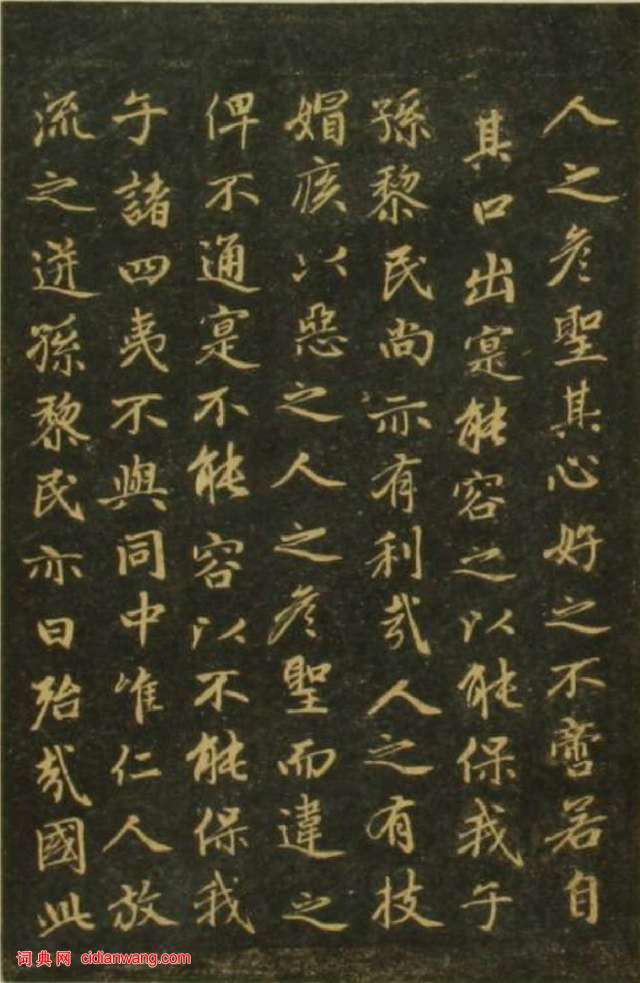 人之彥聖其心好之不啻若自
其口出寔能容之以能保我子
孫黎民尚亦有利哉人之有技
媢疾以惡之人之彥聖而違之
俾不通寔不能容以不能保我
子諸四夷不與同中唯仁人放
流之迸孫黎民亦曰殆哉國此
词典网 cidianwang.com